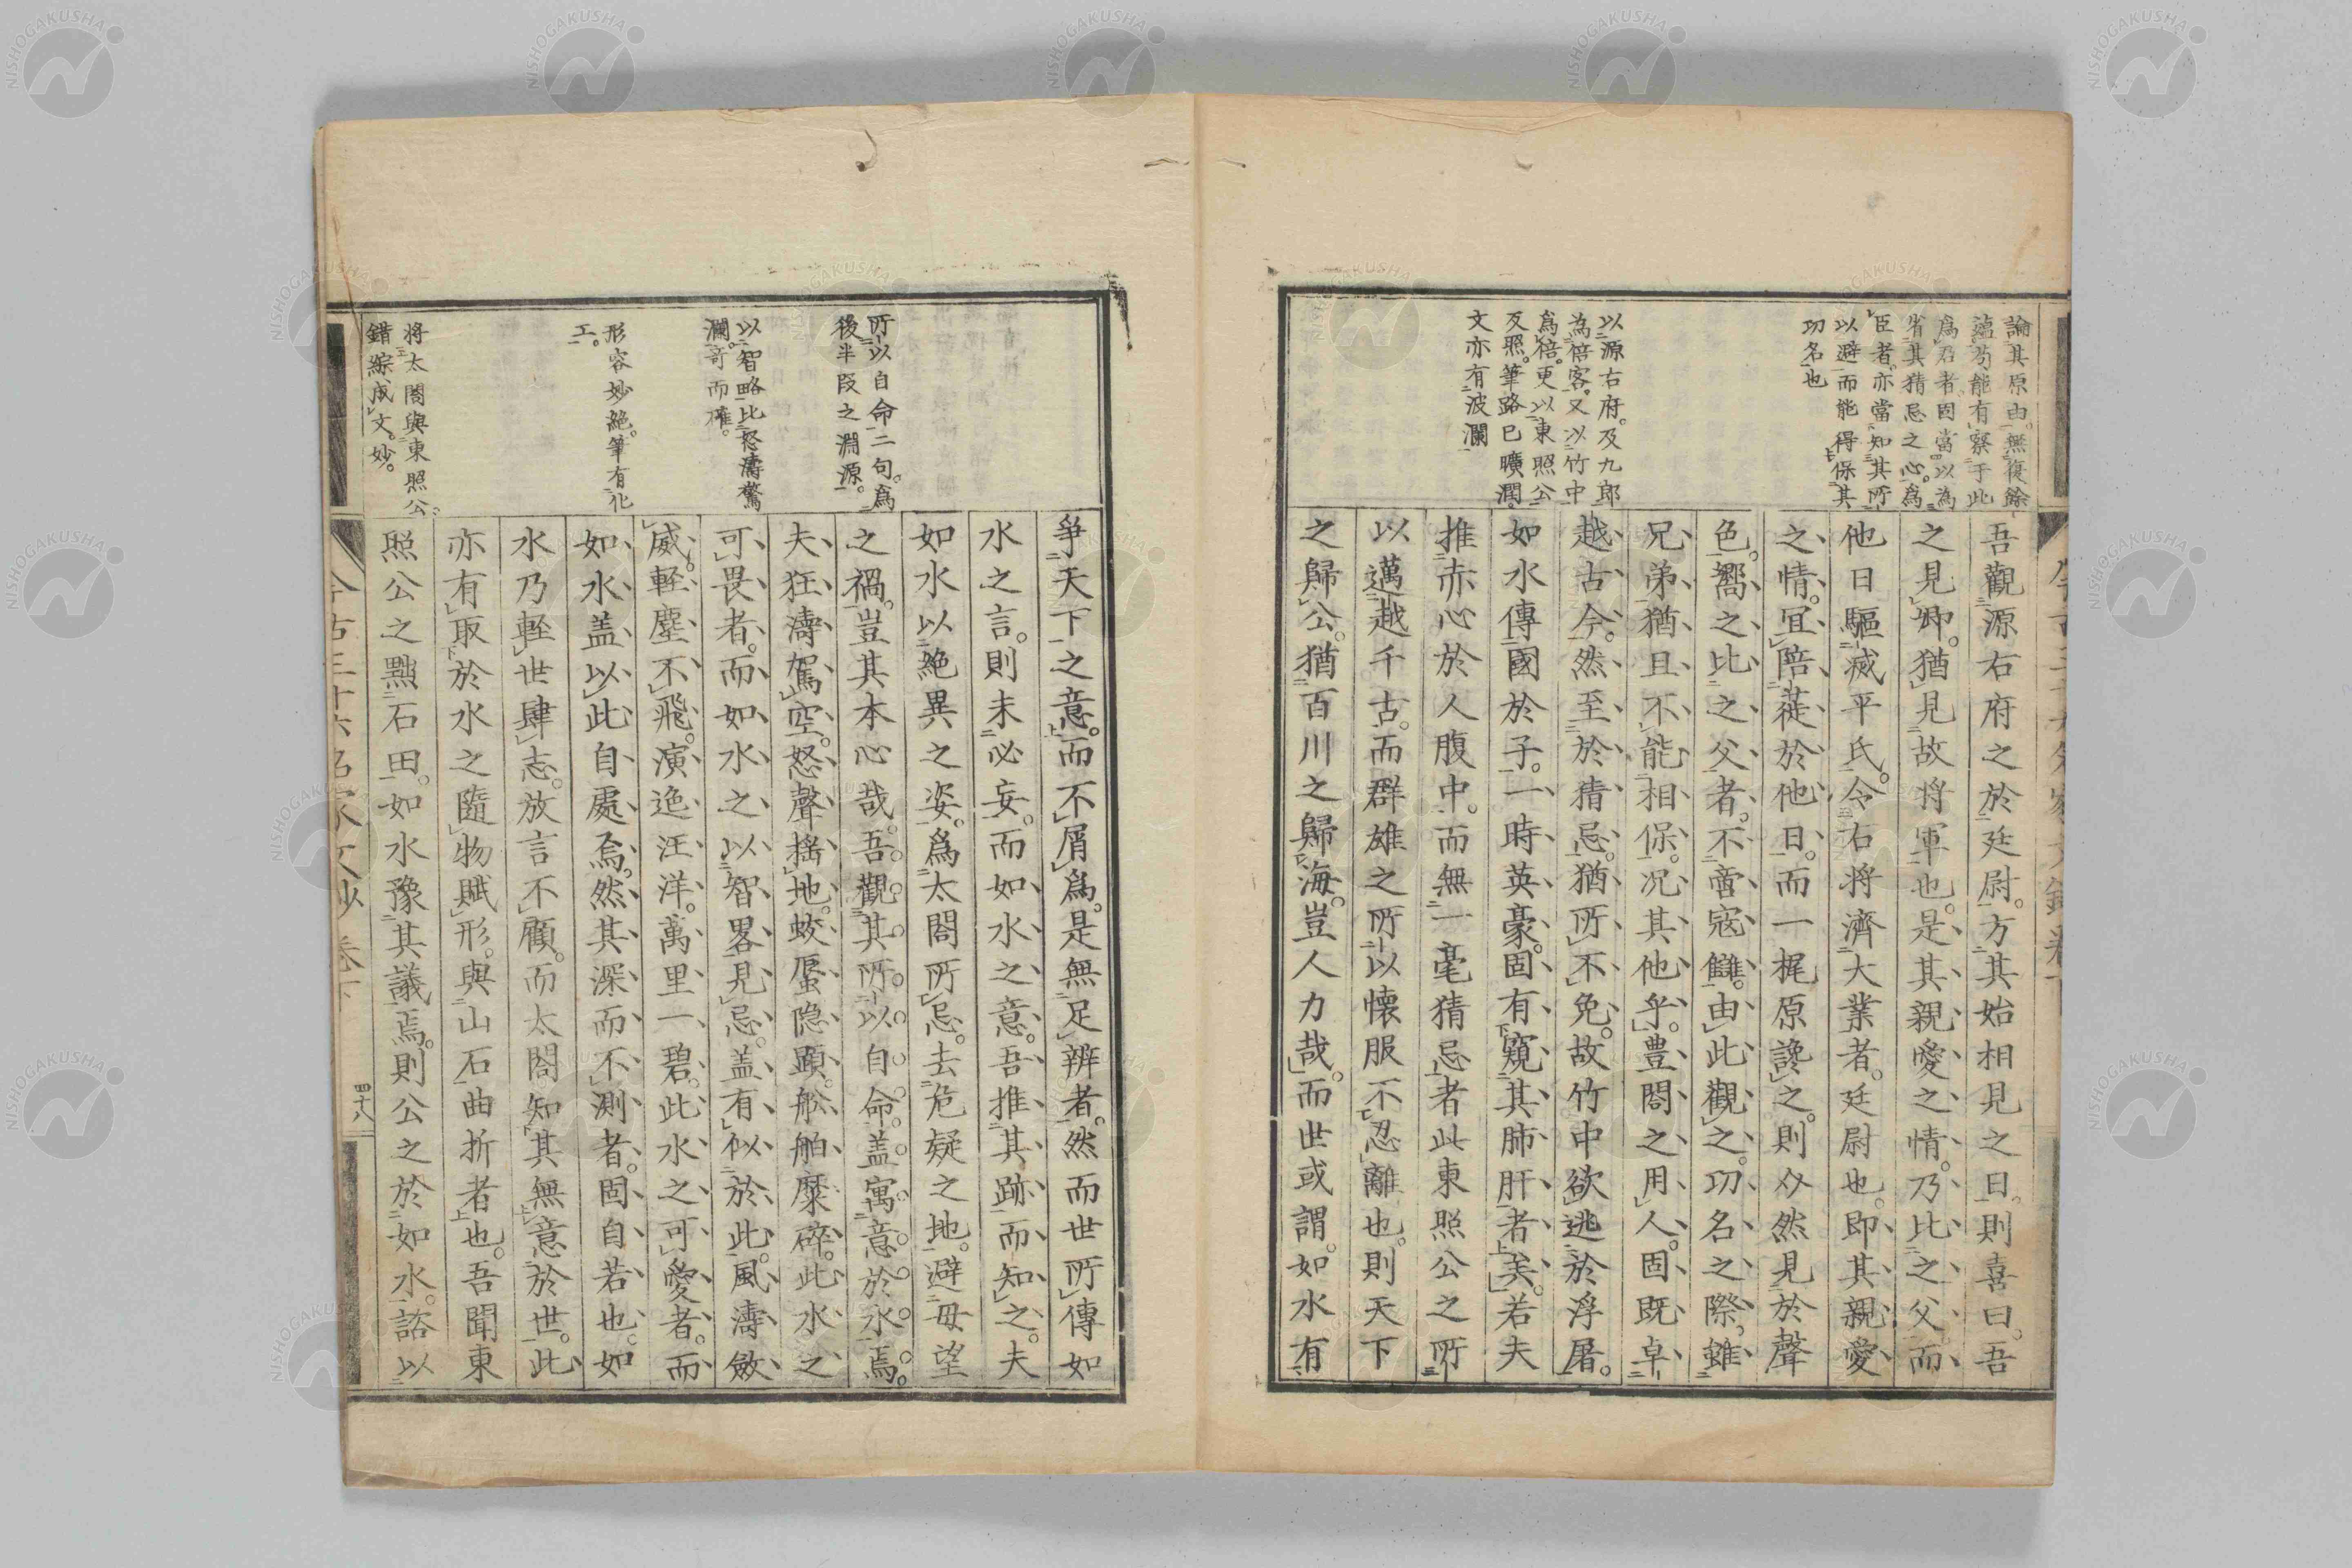 論其原由。無復餘
蘊。苟能有察于此
爲君者固當以為
省其猜忌之心。爲
臣者亦當知其所
以避而能得保其
功名也
以源右府。及九郎
為倍客。又以竹中
爲倍。更以東照公
反照。筆路已曠濶。
文亦有波瀾
吾觀源右府之於廷尉。方其始相見之日。則喜曰。吾
之見卿。猶見故將軍也。是其親愛之情。乃比之父。而
他日驅滅平氏。令右將濟大業者。廷尉也。即其親愛
之情。宜陪蓰於他日。而一梶原讒之。則夊然見於聲
色。嚮之比之父者。不啻寇讎。由此觀之。功名之際。雖
兄弟猶且不能相保。况其他乎。豊閤之用人。固既卓
越古今。然至於猜忌。猶所不免。故竹中欲逃於浮屠。
如水傳國於子。一時英豪。固有窺其肺肝者矣。若夫
推赤心於人腹中。而無一毫猜忌者此東照公之所
以邁越千古。而群雄之所以懐服不忍離也。則天下
之歸公。猶百川之歸海。豈人力哉。而世或謂。如水有
所以自命二句。爲
後半段之淵源。
以智略比怒濤驚
瀾。奇而確。
形容妙絶。筆有化
工。
将太閤與東照公。
錯綜成文。妙。
爭天下之意。而不屑爲。是無足辨者。然而世所傳如
水之言。則未必妄。而如水之意。吾推其跡而知之。夫
如水以絶異之姿。爲太閤所忌。去危疑之地。避毋望
之禍。豈其本心哉。吾觀其所以自命。盖寓意於水焉。
夫狂濤駕空。怒聲搖地。蛟蜃隐顕。舩舶糜碎。此水之
可畏者。而如水之以智畧見忌。盖有似於此。風濤斂
威。軽塵不飛。演迤汪洋。萬里一碧。此水之可愛者。而
如水盖以此自處焉。然其深而不測者。固自若也。如
水乃軽世肆志。放言不顧。而太閤知其無意於世。此
亦有取於水之隨物賦形。與山石曲折者也。吾聞東
照公之點石田。如水豫其議焉。則公之於如水。諮以
四十八